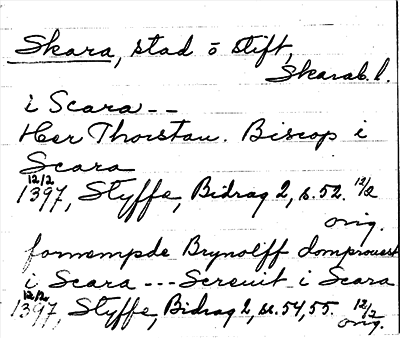 Skara, stad o stift,
Skarab. l.
i Scara --
Her Thorstan. Biscop i
Scara
12/2
1397, Styffe, Bidrag 2, s. 52. 12/2
orig.
fornempde Brynolff domprouast
i Scara --- Screuit i Scara
12/2
1397, Styffe, Bidrag 2, s. 54, 55. 12/2
orig.